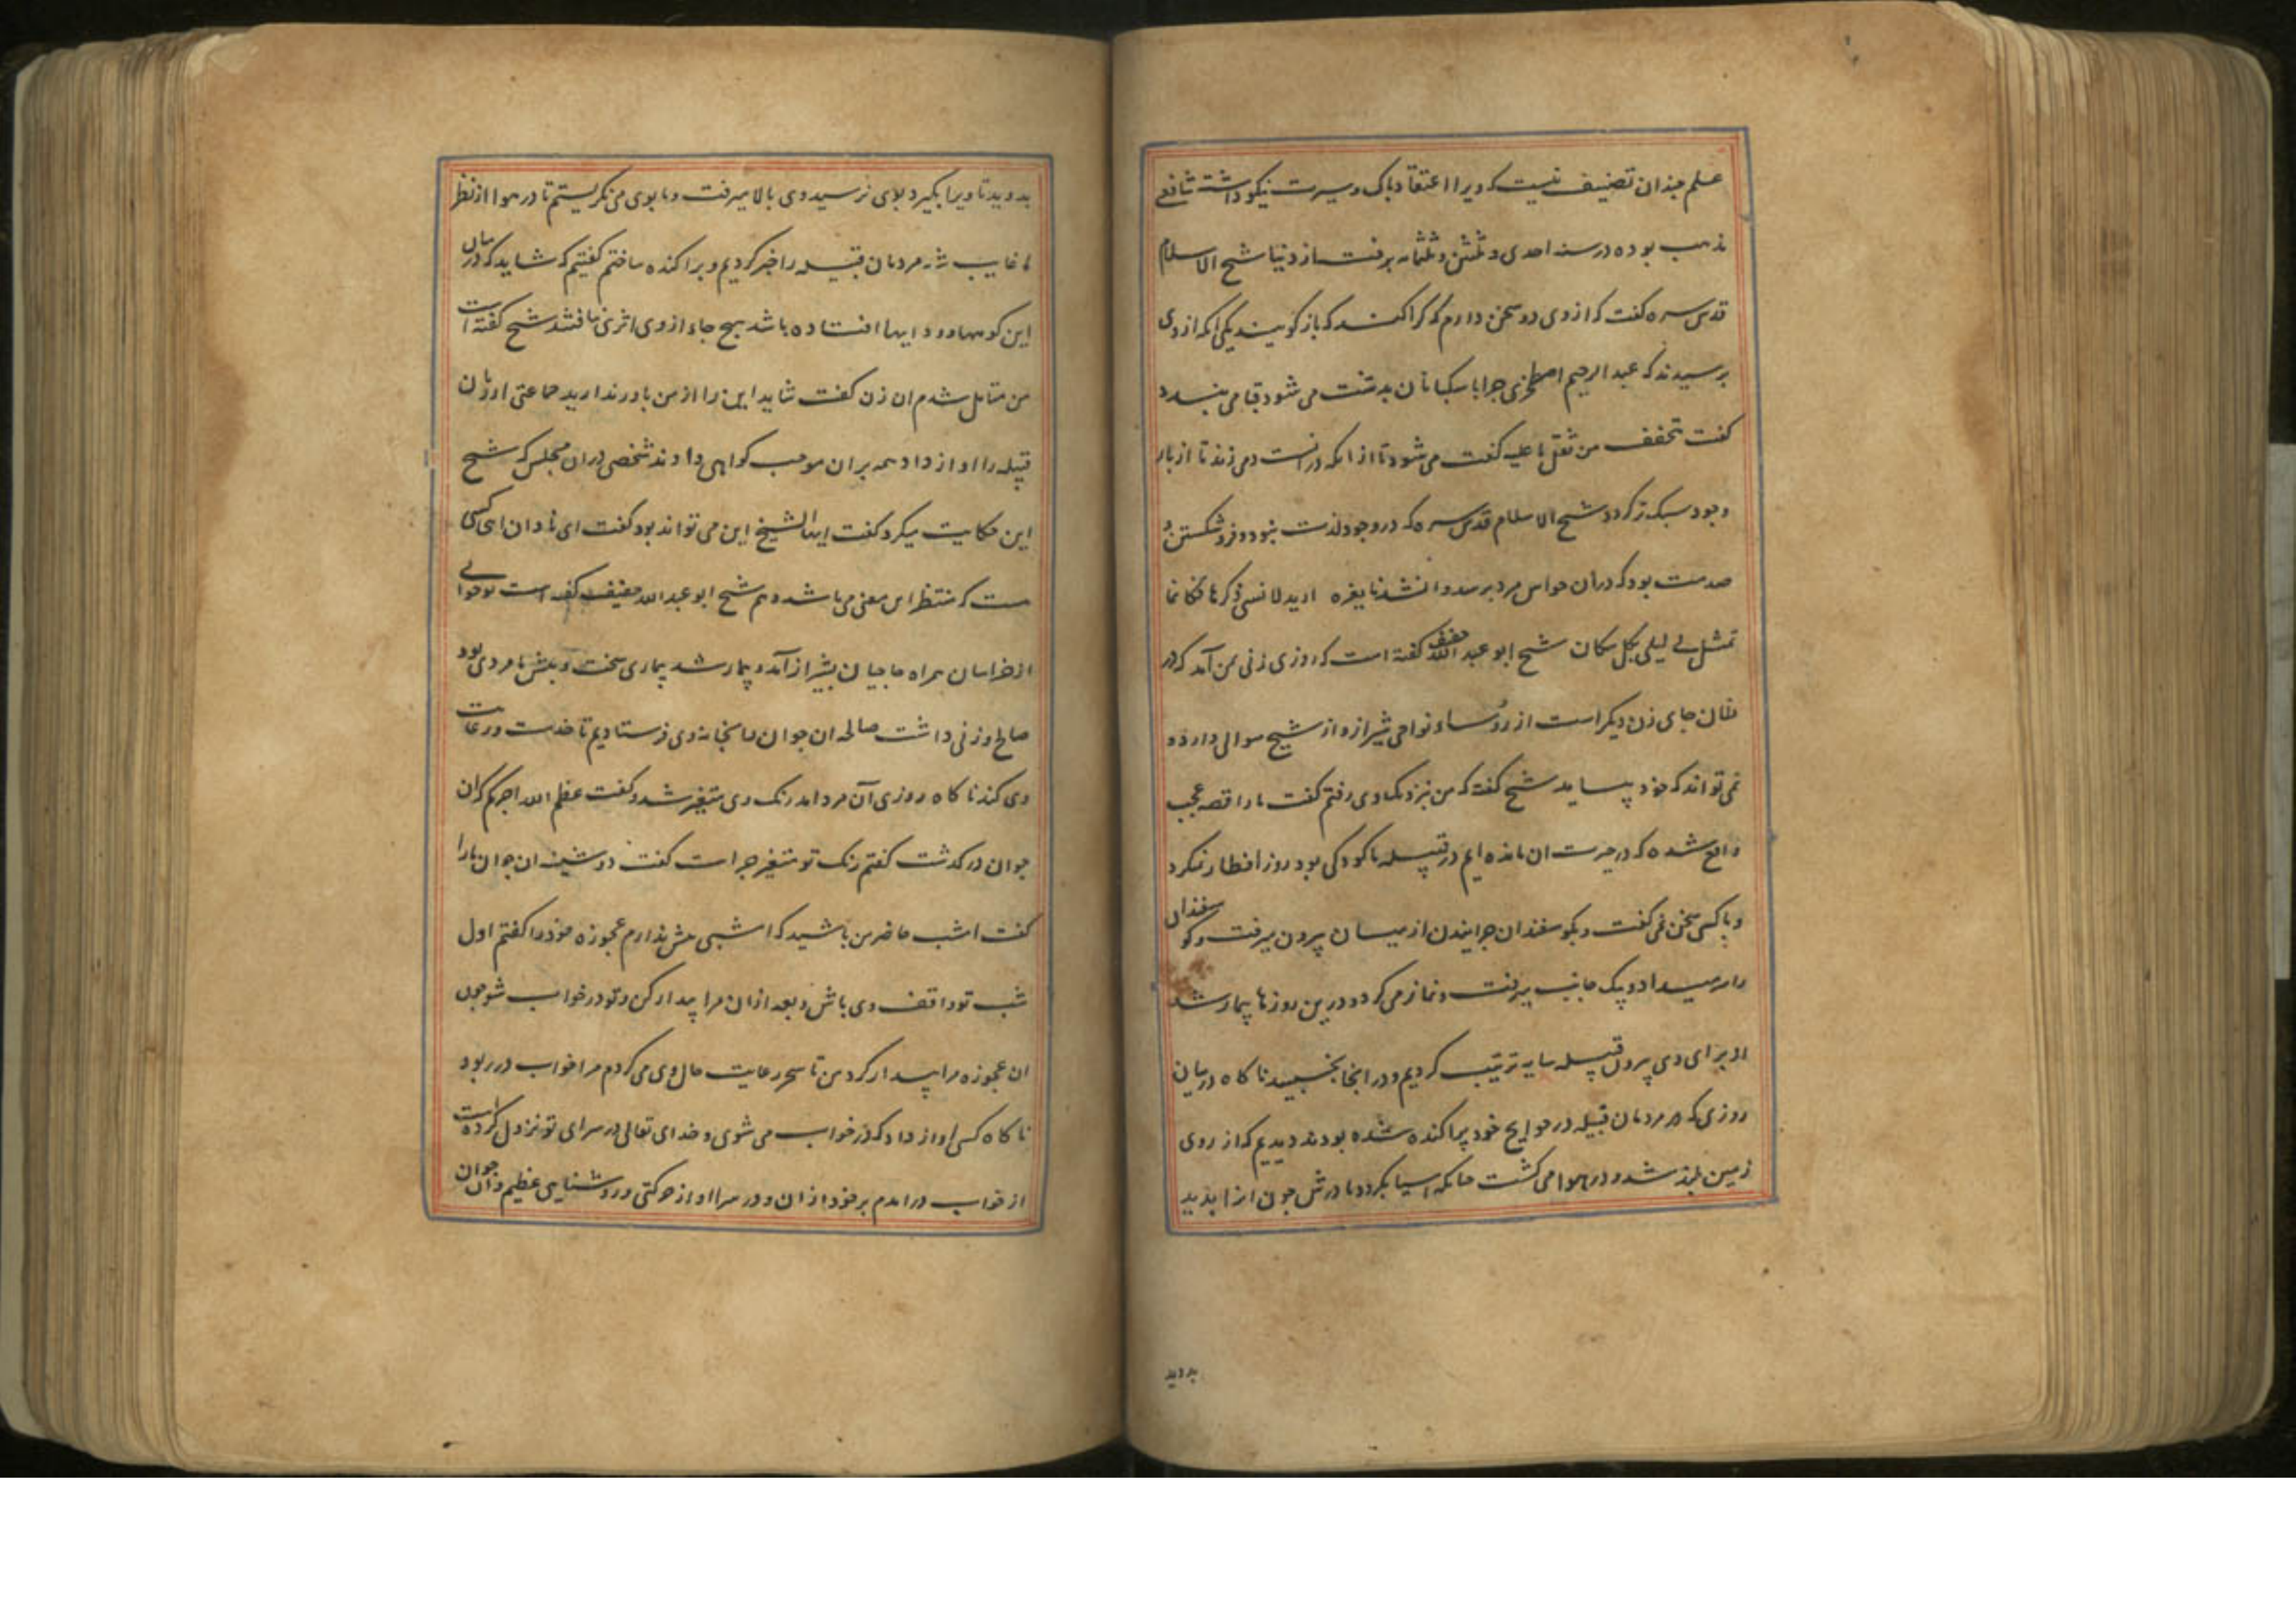 علم چندان تصنیف نیست که ویرا اعتقاد پاک و سیرت نیکو داشت شافعی
مذهب بوده در سنه احدی و ثلثین و ثلثمائه برفت از دنیا شیخ الاسلام
قدس سره گفت که از وی دو سخن دارم که کرا کند که باز گویند یکی آنکه از وی
پرسیدند که عبدالرحیم اصطخری چرا با سکبانان بدشت می شود قبا می بندد
گفت تخفف من ثقل ما علیه گفت می شود تا از آنکه در آنست دمی زند تا از بار
وجود سبک تر گردد شیخ الاسلام قدس سره که در وجود لذت نبود و فرو شکستن
صدمت بود که در آن حواس مرد برسد و انشدنا لغیره ارید لانسی ذکرها فکانما
تمثل لی لیلی بکل مکان شیخ ابو عبدالله خفیف گفته است که روزی زنی بمن آمد که در
فلان جای زن دیگر است از رؤساء نواحی شیراز و از شیخ سوالی دارد و
نمی تواند که خود بیاید شیخ گفته که من نزدیک وی رفتم گفت ما را قصه عجب
واقع شده که در حیرت آن مانده ایم در قبیله ما کودکی بود روز افطار نمیکرد
و با کسی سخن نمی گفت و بگوسفندان چرانیدن از میان بیرون میرفت و گوسفندان
را سر میداد و یک جانب میرفت و نماز می کرد و درین روزها بیمار شد
و برای وی بیرون قبیله سایه ترتیب کردیم و در انجا بخسپید ناکاه در میان
روزی که مردمان قبیله در حوایج خود پراکنده شده بودند دیدیم که از روی
زمین بلند شد و در هوا می گشت چنانکه آسیا بگردد مادرش چون انرا بدید
بدوید
بدوید تا ویرا بگیرد بوی نرسید وی بالا میرفت و ما بوی می نگریستیم تا در هوا از نظر
ما غایب شد مردمان قبیله را خبر کردیم و پراکنده ساختیم گفتیم که شاید که در میان
این کوهها و وادیها افتاده باشد هیچ جا از وی اثری نیافتند شیخ گفته است
من متامل شدم ان زن گفت شاید این را از من باور ندارید جماعتی از زنان
قبیله را اواز داد همه بران موجب کواهی دادند شخصی دران مجلس که شیخ
این حکایت میکرد گفت ایها الشیخ این می تواند بود گفت ای نادان اینجا کسی
هست که منتظر این معنی می باشد و هم شیخ ابو عبدالله خفیف گفته است که جوانی
از خراسان همراه حاجیان بشیراز آمد و بیمار شد بیماری سخت و پیش ما مردی بود
صالح و زنی داشت صالحه ان جوان را بخانه وی فرستادیم تا خدمت و رعایت
وی کند ناکاه روزی آن مرد آمد رنگ وی متغیر شده و گفت عظم الله اجرکم که ان
جوان در گذشت گفتم رنگ تو متغیر چرا است گفت دوشینه ان جوان ما را
گفت امشب حاضر من باشید که امشبی بیش ندارم عجوزه خود را گفتم اول
شب تو واقف وی باش و بعد ازان مرا بیدار کن و تو در خواب شو چون
ان عجوزه مرا بیدار کرد من تا سحر رعایت حال وی می کردم مرا خواب در ربود
ناکاه کسی اواز داد که در خواب می شوی و خدای تعالی در سرای تو نزول کرده است
از خواب در امدم بر خود لرزان و در سرا اواز حرکتی و روشنایی عظیم و ان جوان